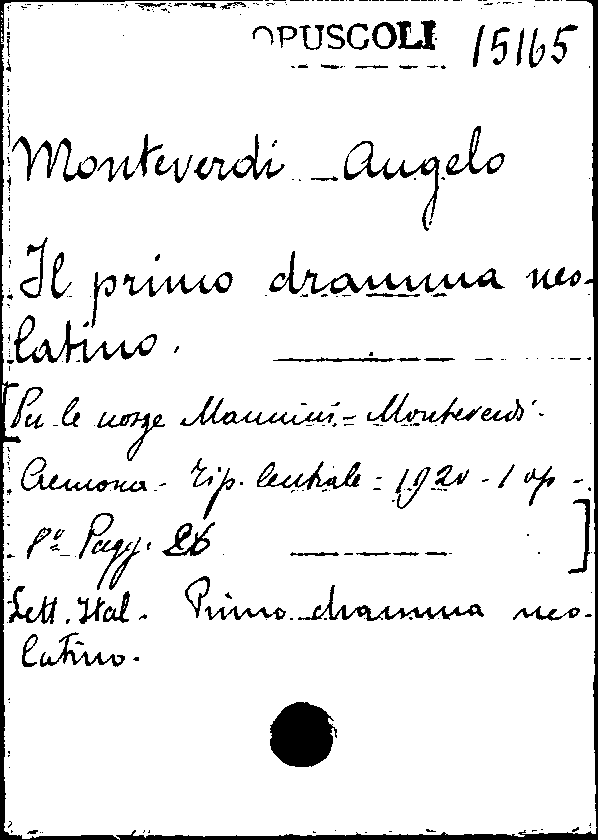 OPUSCOLI 15165
Monteverdi Angelo
Il primo dramma neo-
latino.
[Per le nozze Mannini - Monteverdi.
Cremona - Tip. Centrale - 1920 - 1 op -
8º Pagg. 26 ]
Lett. Ital. Primo dramma neo-
latino.